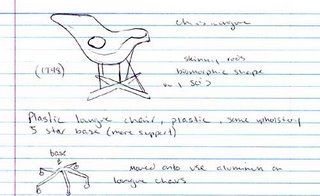 chaise longue
(1948)
skinny rods
biomorphic shape
50's
Plastic longue chairs, plastic, some upholstery
5 star base (more support)
base
moved onto use aluminum on
longue chairs